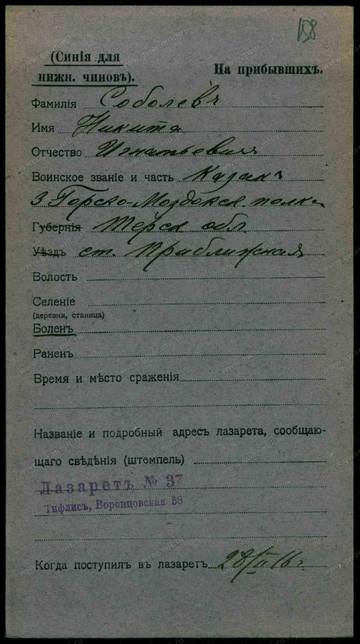 158
(Синія для
нижн. чиновъ).
На прибывшихъ.
Фамилія Соболевъ
Имя Никита
Отчество Игнатьевич
Воинское званіе и часть Казакъ
3 Горско-Моздокск. полка
Губернія Терск обл
Уѣздъ ст. Приближная
Волость
Селеніе
(деревня, станица)
Боленъ
Раненъ
Время и мѣсто сраженія
Названіе и подробный адресъ лазарета, сообщаю-
щаго свѣдѣнія (штемпель)
Лазаретъ № 37
Тифлисъ, Воронцовская 58
Когда поступилъ въ лазаретъ 28/ 16 г.